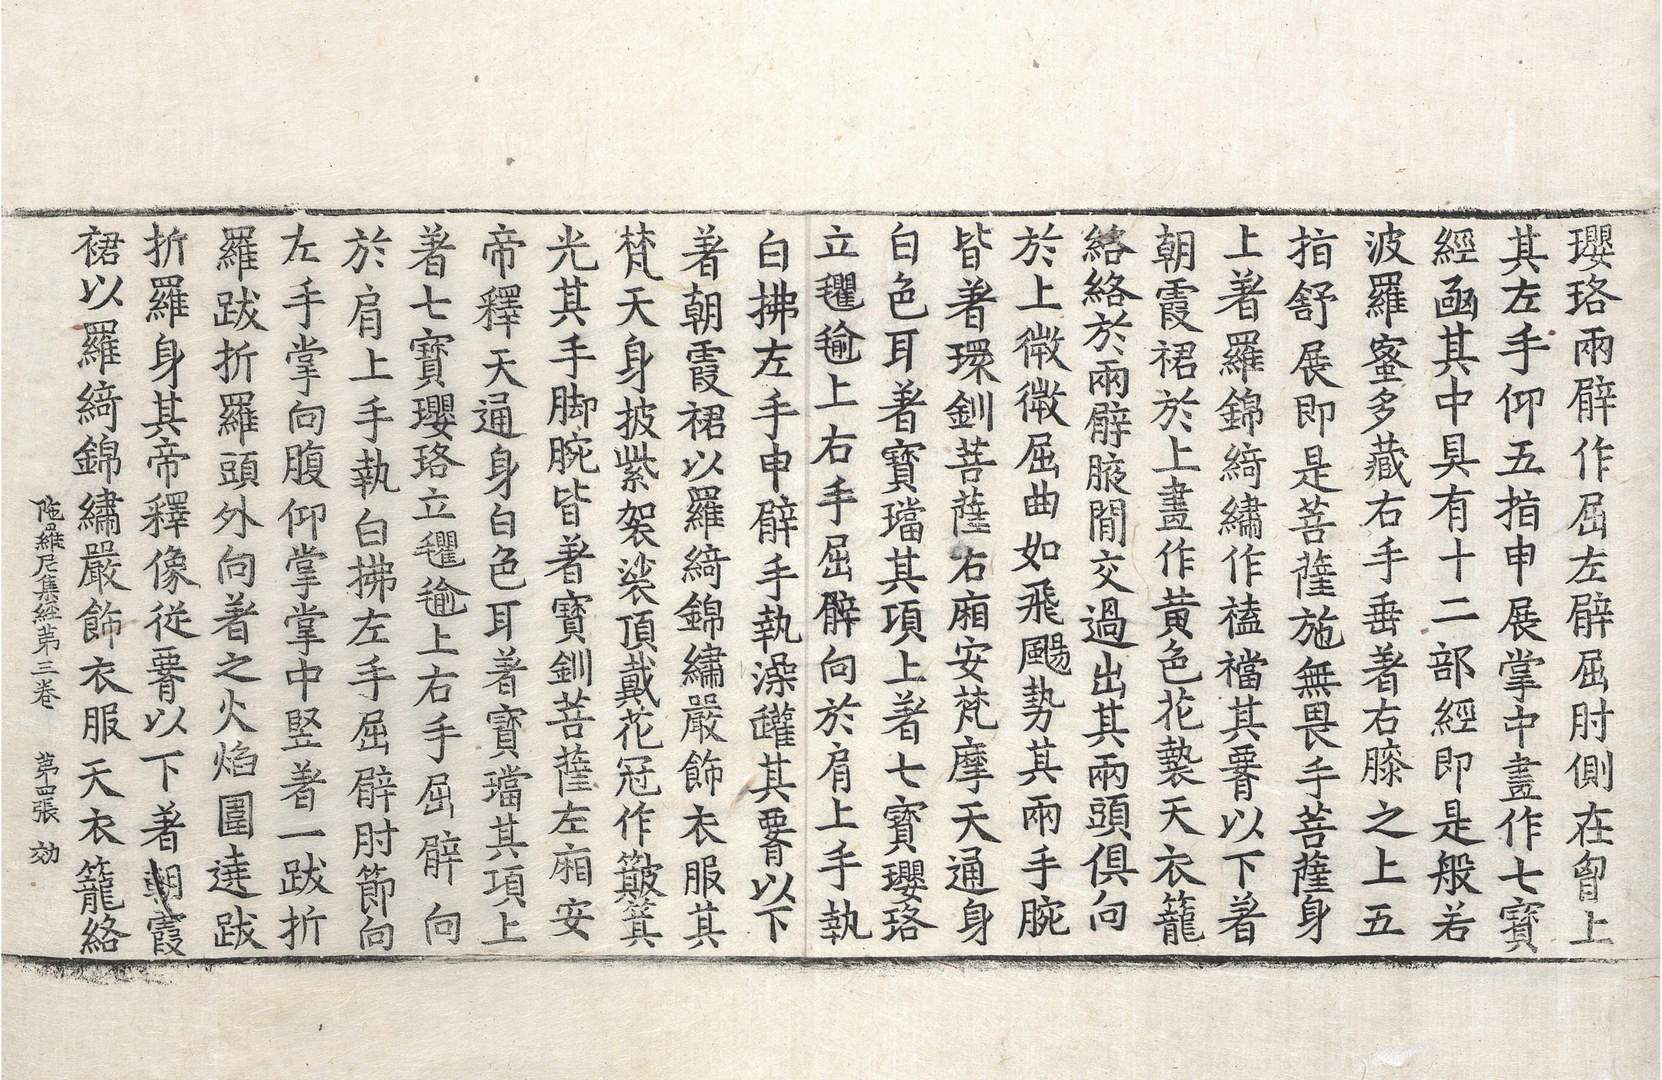 瓔珞兩臂作屈左臂屈肘側在胷上
其左手仰五指申展掌中畫作七寶
經凾其中具有十二部經即是般若
波羅蜜多藏右手垂著右膝之上五
指舒展即是菩薩施無畏手菩薩身
上著羅錦綺繡作䙪襠其𦝫以下著
朝霞裙於上畫作黄色花褺天衣籠
絡絡於兩臂腋間交過出其兩頭俱向
於上微微屈曲如飛颺勢其兩手腕
皆著環釧菩薩右廂安梵摩天通身
白色耳著寶璫其項上著七寶瓔珞
立氍毹上右手屈臂向於肩上手執
白拂左手申臂手執澡罐其𦝫以下
著朝霞裙以羅綺錦繡嚴飾衣服其
梵天身披紫袈裟頂戴花冠作簸箕
光其手脚腕皆著寶釧菩薩左廂安
帝釋天通身白色耳著寶璫其項上
著七寶瓔珞立氍毹上右手屈臂向
於肩上手執白拂左手屈臂肘節向
左手掌向腹仰掌掌中竪著一跋折
羅跋折羅頭外向著之火焰圍遶跋
折羅身其帝釋像從𦝫以下著朝霞
裙以羅綺錦繡嚴飾衣服天衣籠絡
陁羅尼集經第三卷 第四張 効